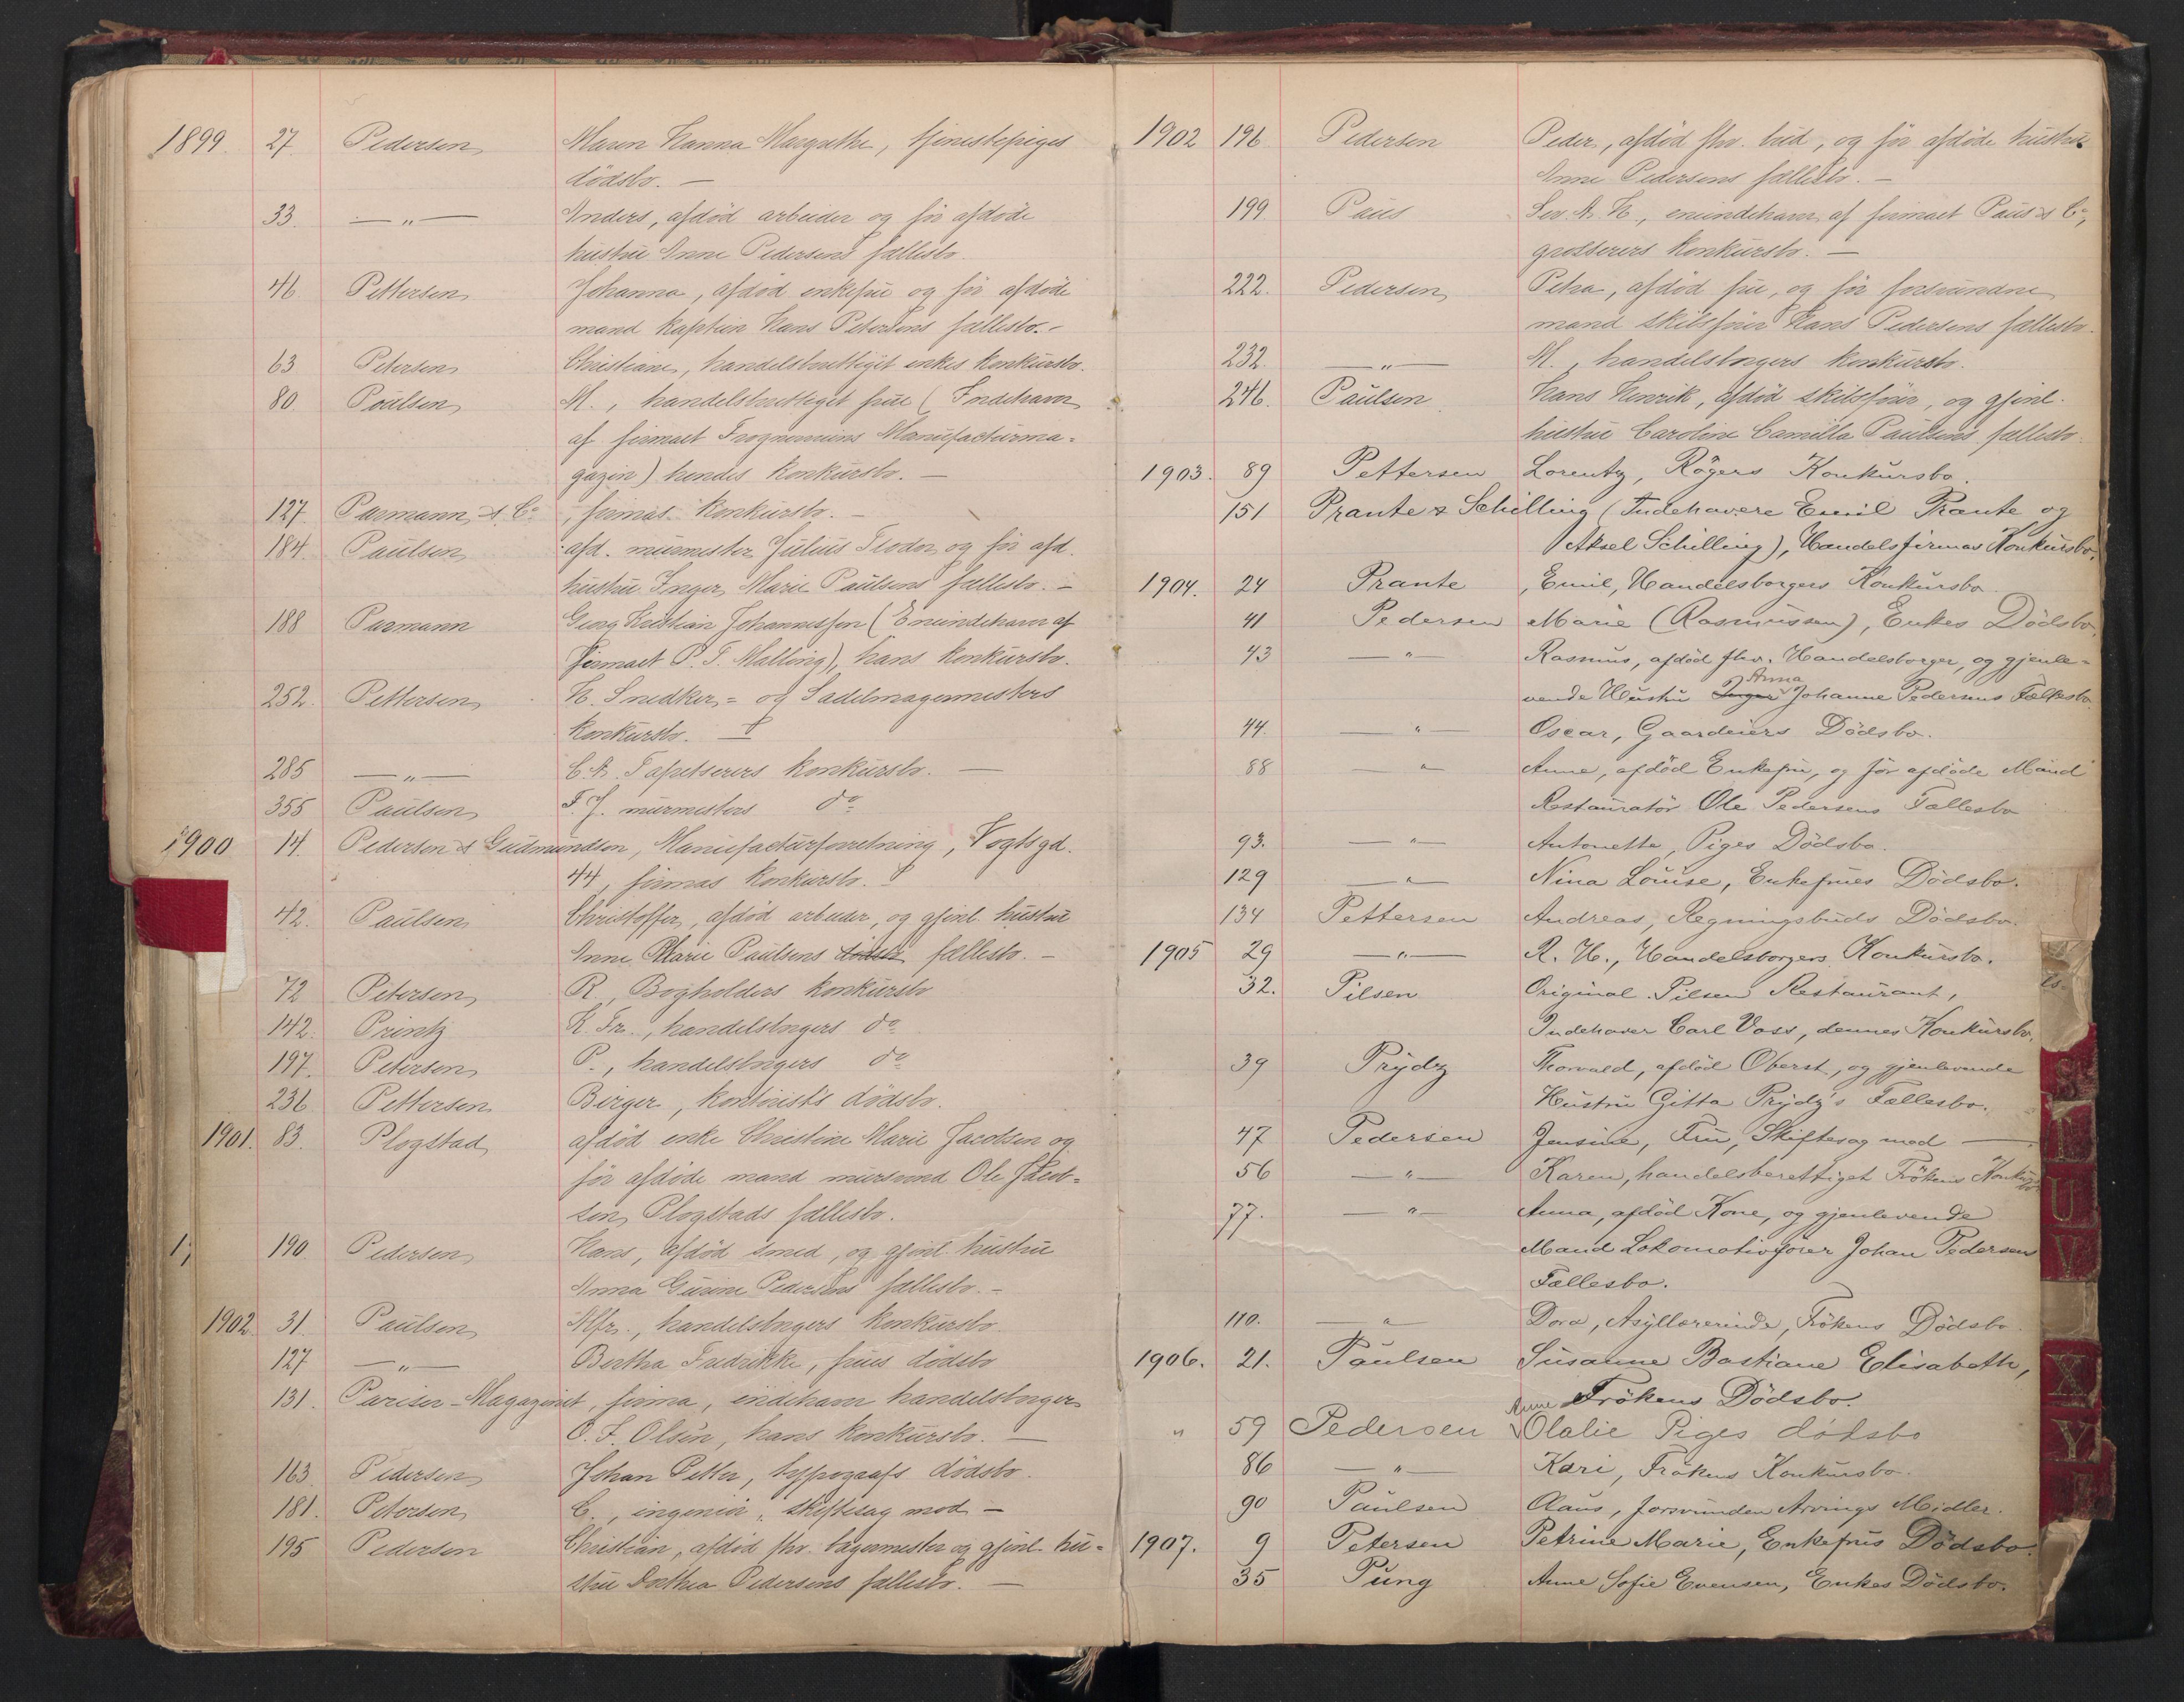 1899. 27. Pedersen Maren Hanna Margrethe, tjenestepiges
dödsbo. —
33. — " — Anders, afdød arbeider og før afdøde
hustru Anne Pedersens fællesbo.
46 Pettersen Johanna, afdød enkefrue og før afdøde
mand kaptein Hans Petersens fællesbo. -
63 Petersen Christiane, handelsberettiget enkes konkursbo.
80. Poulsen M., handelsberettiget frue (Indehaver
af firmaet Frognerveiens Manufacturma-
gazin) hendes konkursbo. —
127 Parmann & Co. , firmas konkursbo. —
184. Paulsen afd. murmester Julius Teodor og før afd.
hustru Inger Marie Paulsens fællesbo. -
188 Parmann Georg Kristian Johannessen (Eneindehaver af
firmaet P. T. Malling), hans konkursbo.
252. Pettersen H. Snedker- og Sadelmagermesters
konkursbo. —
285 — " — C. A. Tapetserers konkursbo. —
355 Paulsen F. J. murmesters do
1900 14. Pedersen & Gudmundsen, Manufacturforretning, Vogtsgd.
44, firmas konkursbo.
42. Paulsen Christoffer, afdød arbeider, og gjenl. hustru
Anne Marie Paulsens fællesbo. -
72 Petersen R., Bogholders konkursbo
142. Printz K. Fr., handelsborgers do
197. Petersen P., handelsborgers do
236 Pettersen Birger, kontorists dödsbo.
1901. 83. Plogstad afdød enke Christine Marie Jacobsen og
før afdøde mand mursvend Ole Jacob-
sen Plogstads fællesbo.
1, 190. Pedersen Hans, afdød smed, og gjenl. hustru
Anna Gurine Pedersens fællesbo. -
1902. 31. Paulsen Alfr., handelsborgers konkursbo.
127 — " — Bertha Fredrikke, frues dödsbo
131. Pariser-Magazinet, firma, indehaver handelsborger
O. F. Olsen, hans konkursbo. —
163 Pedersen Johan Petter, typografs dödsbo.
181. Petersen C., ingeniör, skiftesag mod —
195 Pedersen Christian, afdød fhv. bagermester og gjenl. hu-
stru Dorthea Pedersens fællesbo. —
1902 196 Pedersen Peder, afdød fhv. bud, og før afdøde hustru
Anne Pedersens fællesbo. —
199 Paus eneindehaver af firmaet Paus & Co,
grosserers konkursbo. —
222. Pedersen Petra, afdød frue, og før forsvundne
mand skibsfører Hans Pedersens fællesbo.
232. — " — M., handelsborgers konkursbo.
246. Paulsen Hans Henrik, afdød skibsfører, og gjenl.
hustru Caroline Camilla Paulsens fællesbo.
1903. 89 Pettersen Lorentz, Røgers Konkursbo.
151 Prante & Schilling (Indehavere Emil Prante og
Aksel Schilling), Handelsfirmas Konkursbo.
1904. 24 Prante , Emil, Handelsborgers Konkursbo.
41 Pedersen Marie (Rasmussen), Enkes Dödsbo.
43 — " — Rasmus, afdød fhv. Handelsborger, og gjenle-
Anna
vende Hustru Inger Johanne Pedersens Fællesbo
44. — " — Oscar, Gaardeiers Dödsbo.
88 — " — Anne, afdød Enkefru, og før afdøde Mand
Restauratör Ole Pedersens Fællesbo
93. — " — Antonette, Piges Dödsbo.
129 — " — Nina Louise, Enkefrues Dödsbo.
134 Pettersen Andreas, Regningsbuds Dödsbo.
1905 29 — " — R. H., Handelsborgers Konkursbo.
32. Pilsen Original Pilsen Restaurant,
Indehaver Carl Voss, dennes Konkursbo.
39 Prydz Thorvald, afdød Oberst, og gjenlevende
Hustru Gitta Prydz's Fællesbo.
47 Pedersen Jensine, Fru, Skiftesag mod —
56 — " — Karen, handelsberettiget Frökens Konkursbo
77. — " — Anna, afdød Kone, og gjenlevende
Mand Lokomotivfører Johan Pedersens
Fællesbo.
110. — " — Dora, Asyllærerinde, Frökens Dödsbo.
1906. 21. Paulsen Susanne Bastiane Elisabeth,
Frökens Dödsbo.
Anne
" 59 Pedersen Olalie Piges dødsbo
86 — " — Kari, Frökens Konkursbo.
90 Paulsen Claus, forsvunden Arvings Midler.
1907. 9 Petersen Petrine Marie, Enkefrus Dödsbo.
35 Pung Anne Sofie Evensen, Enkes Dödsbo.
S
T
U
V
X
Y